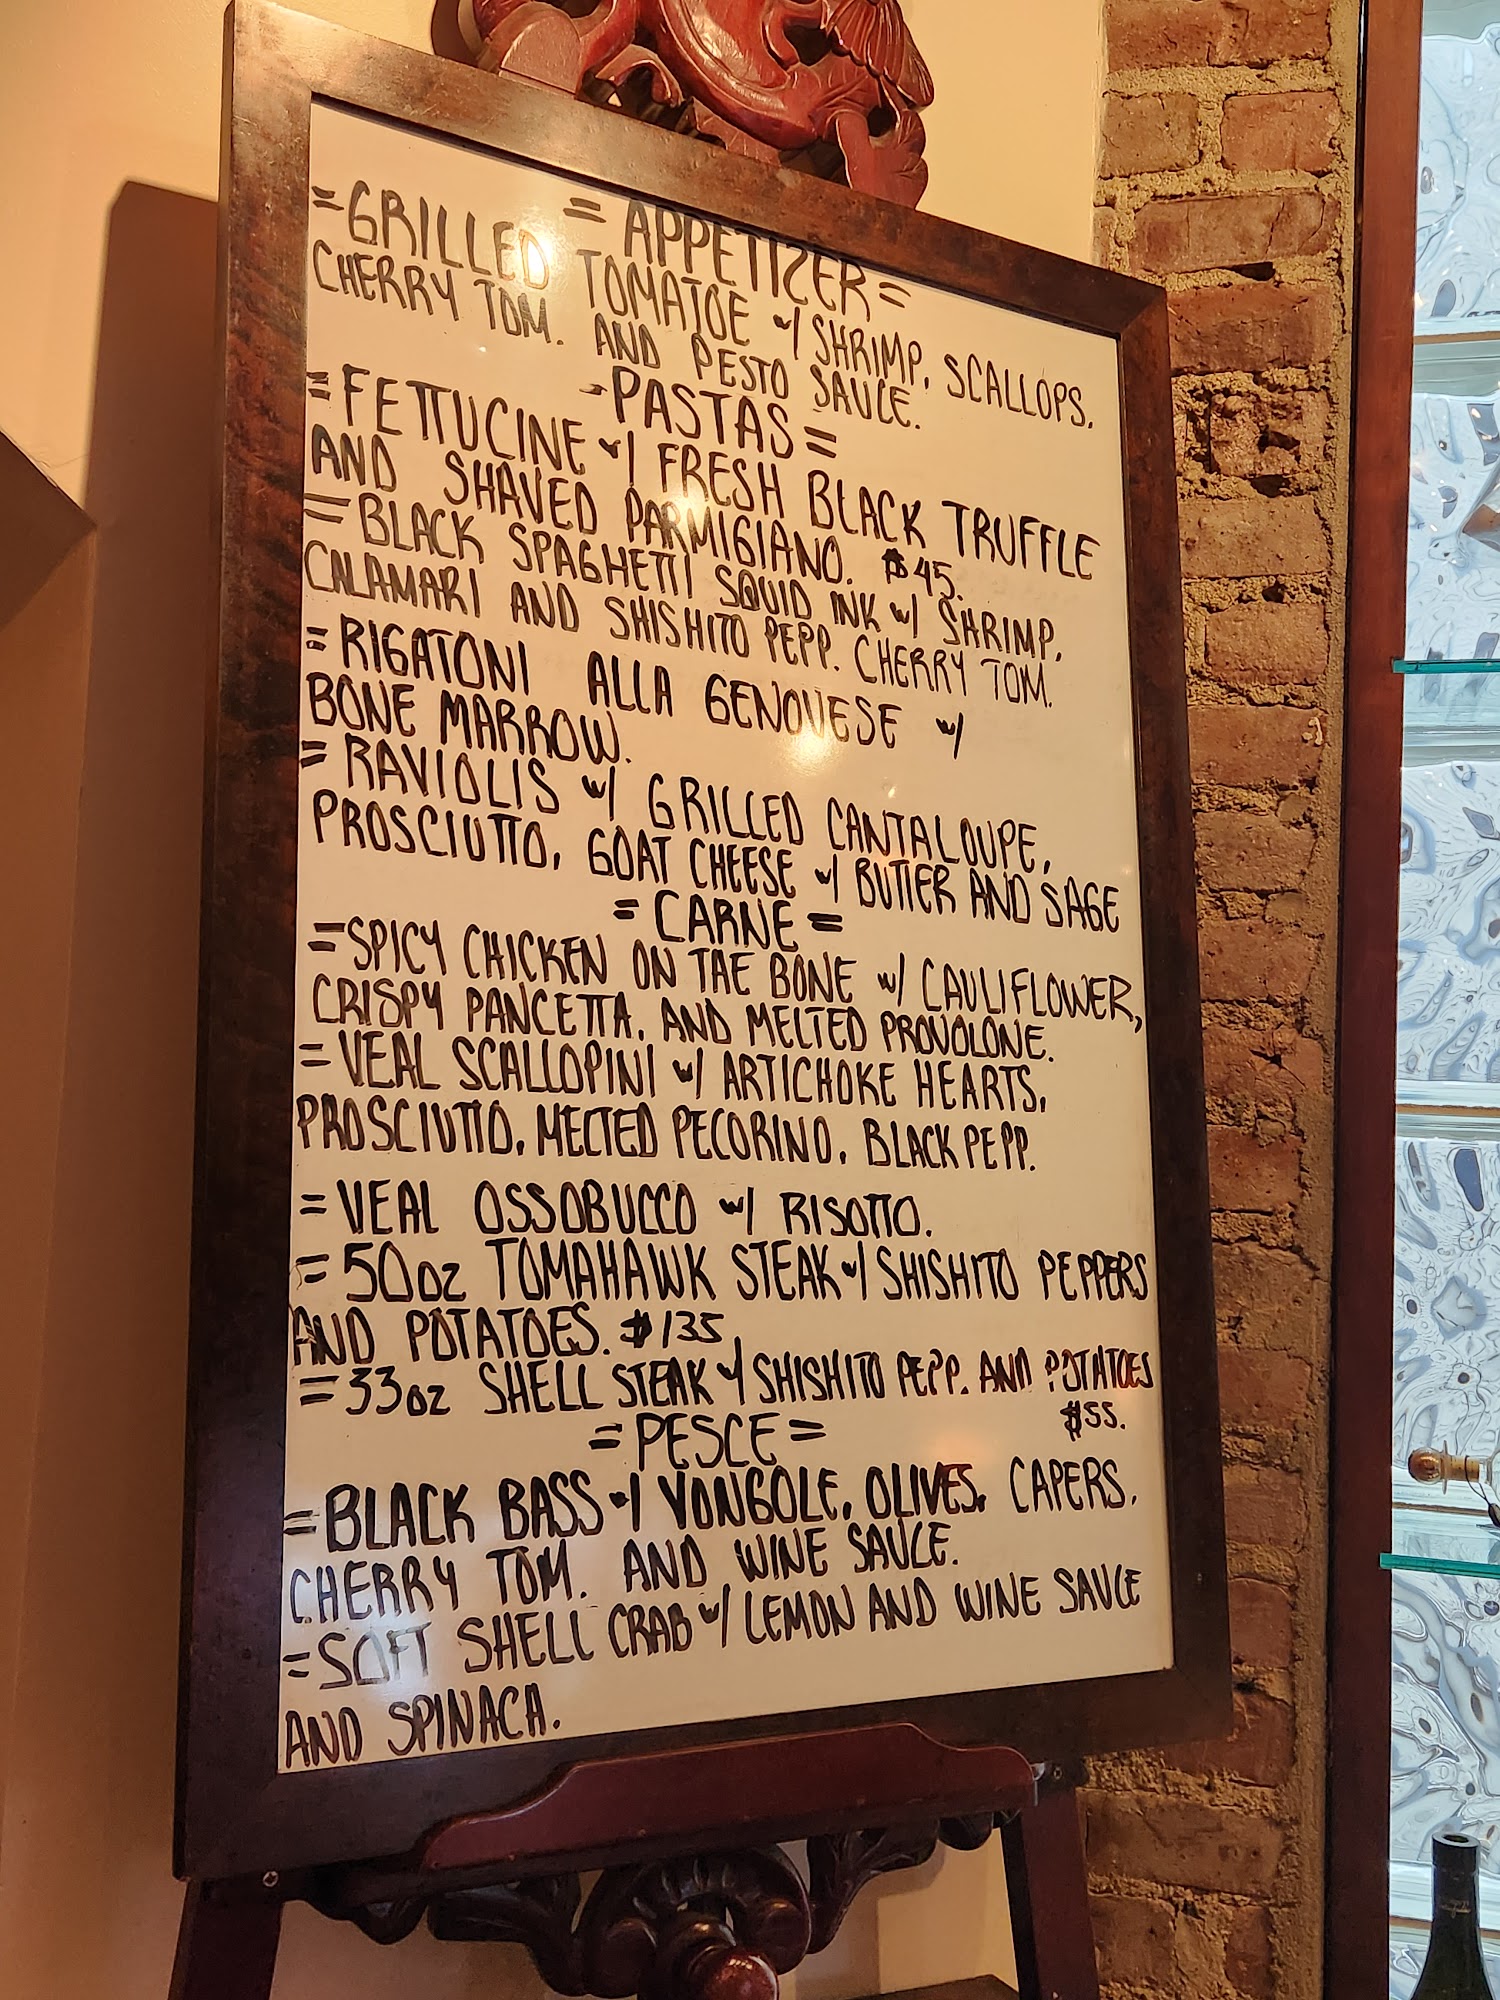 = APPETIZER =
=GRILLED TOMATOE w/ SHRIMP, SCALLOPS,
CHERRY TOM. AND PESTO SAUCE.
-PASTAS=
=FETTUCINE w/ FRESH BLACK TRUFFLE
AND SHAVED PARMIGIANO. $45.
=BLACK SPAGHETTI SQUID INK w/ SHRIMP,
CALAMARI AND SHISHITO PEPP. CHERRY TOM.
=RIGATONI ALLA GENOVESE w/
BONE MARROW.
=RAVIOLIS w/ GRILLED CANTALOUPE,
PROSCIUTTO, GOAT CHEESE w/ BUTTER AND SAGE
=CARNE=
=SPICY CHICKEN ON THE BONE w/ CAULIFLOWER,
CRISPY PANCETTA, AND MELTED PROVOLONE.
=VEAL SCALLOPINI w/ ARTICHOKE HEARTS,
PROSCIUTTO, MELTED PECORINO, BLACK PEPP.
=VEAL OSSOBUCCO w/ RISOTTO.
=50oz TOMAHAWK STEAK w/ SHISHITO PEPPERS
AND POTATOES. $135.
=33oz SHELL STEAK w/ SHISHITO PEPP. AND POTATOES
$55.
=PESCE=
=BLACK BASS w/ VONGOLE, OLIVES, CAPERS,
CHERRY TOM. AND WINE SAUCE.
=SOFT SHELL CRAB w/ LEMON AND WINE SAUCE
AND SPINACA.